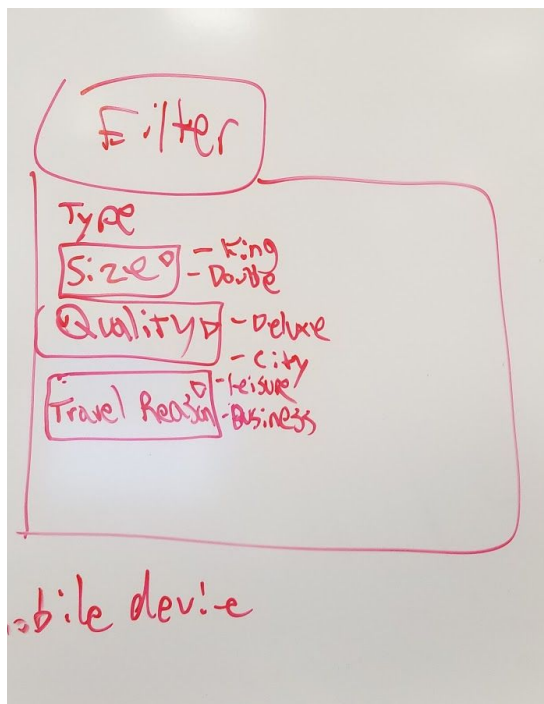 Filter
Type
Size - King
- Double
Quality - Deluxe
- City
Travel Reason - Leisure
- Business
mobile device